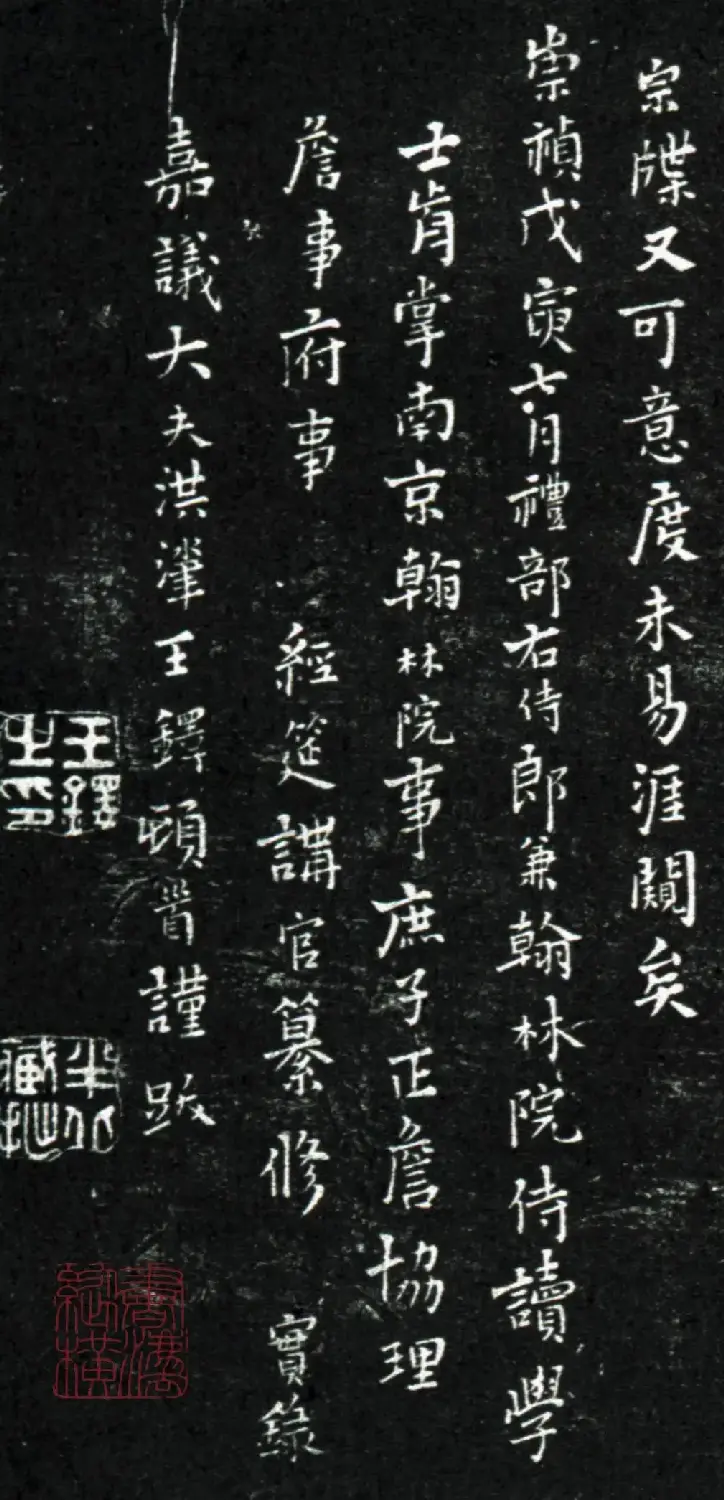 宗牒又可意度未易涯闚矣
崇禎戊寅七月禮部右侍郎兼翰林院侍讀學
士前掌南京翰林院事庶子正詹協理
詹事府事 經筵講官纂修 實錄
嘉議大夫洪灋王鐸頓首謹跋
王鐸之印
書法縱橫